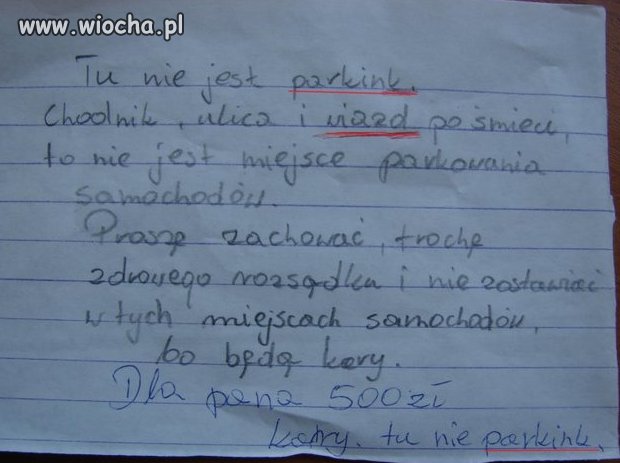 www.wiocha.pl
Tu nie jest parkink.
Chodnik, ulica i wiazd po śmieci,
to nie jest miejsce parkowania
samochodów.
Proszę zachować, trochę
zdrowego rozsądku i nie zostawiać
w tych miejscach samochodów,
bo będą kary.
Dla pana 500 zł
kary. tu nie parkink.